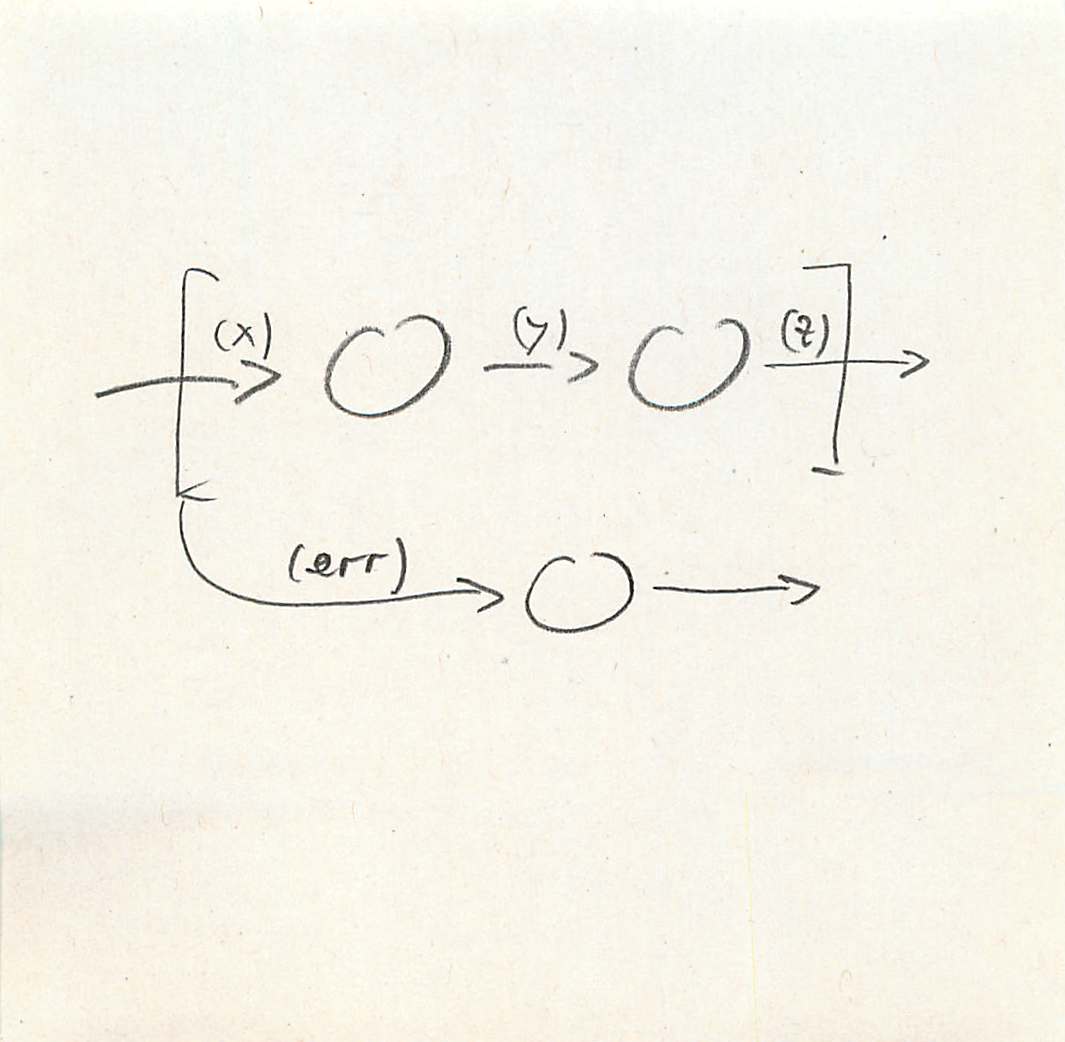 (x) (y) (z)
(err)